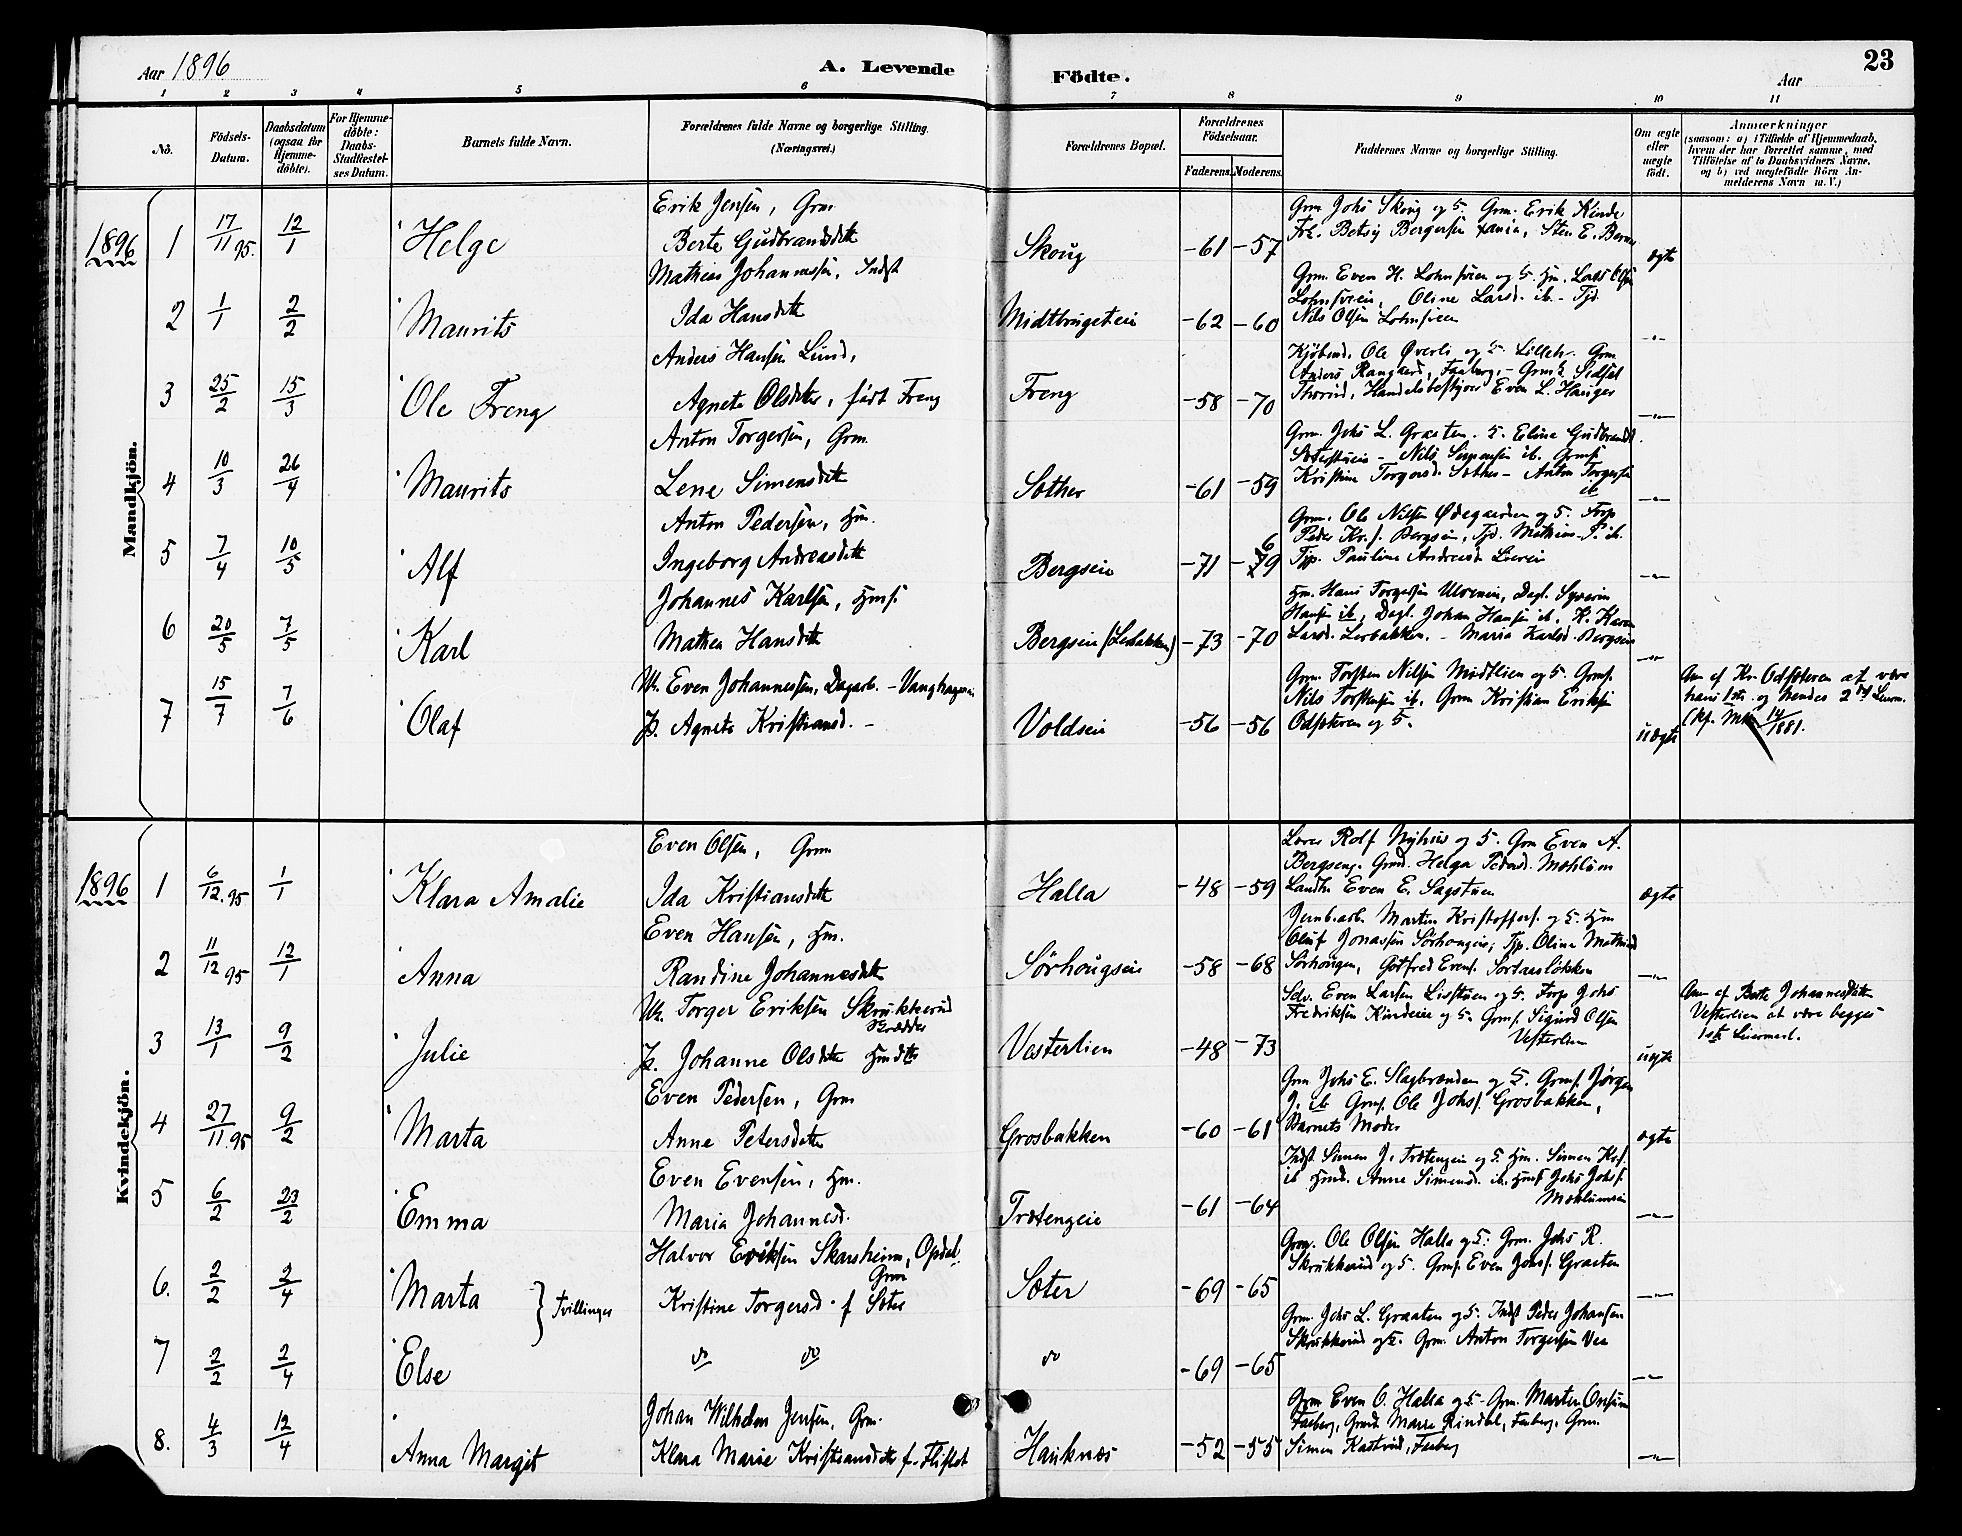 Aar 1896
A. Levende Födte.
Aar
23
1 2 3 4 5 6 7 8 9 10 11
No.
Födsels-Datum.
Daabsdatum (ogsaa for Hjemmedöbte).
For Hjemmedöbte: Daabs-Stadfæstelses Datum.
Barnets fulde Navn.
Forældrenes fulde Navne og borgerlige Stilling. (Næringsvei.)
Forældrenes Bopæl.
Forældrenes Födselsaar.
Faderens. Moderens.
Faddernes Navne og borgerlige Stilling.
Om ægte eller uægte födt.
Anmærkninger
(saasom: a) i Tilfælde af Hjemmedaab, hvem der har forrettet samme, med Tilföielse af to Daabsvidners Navne, og b) ved uægtefödte Börn Anmelderens Navn m. V.)
Mandkjön.
1896 1 17/11 95. 12/1 Helge
Erik Jensen, Grm
Berte Gudbrandsdtt
Skoug -61 -57
Grm Johs Skoug og H. Grm. Erik Kinde
Frk. Betsy Bergersen Xania, Sten E.
ægte
2 1/1 2/2 Maurits
Mathias Johannessen, Indst
Ida Hansdtt
Midtbrugeteie -62 -60
Grm. Even H.
Oline Larsd. ib. - Tjd.
Nils Olsen
-"-
3 25/2 15/3 Ole Freng
Anders Hansen Lund,
Agnete Olsdtter, født Freng
Freng -58 -70
Kjøbmd. Ole Øverli og H. Lilleh. Grm
Anders Rangaard, Faaberg, - Grmk Sidsel
Thorud, Handelsbestyrer Even L. Hauger
-"-
4 10/3 26/4 Maurits
Anton Torgersen, Grm.
Lene Simensdtt
Sæther -61 -59
Grm. Johs L. Graaten. H. Elina Gudbrandsd.
Sæterstuein - Nils Simensen ib. Grmss
Kristine Torgersd. Sæther - Anton Torgersen
ib
-"-
5 7/4 10/5 Alf
Anton Pedersen, Hm.
Ingeborg Andreasdtt
Bergseie -71 -69
Grm. Ole Nilsen Ødegaarden og H. Forp
Peder Kr.s. Bergseie, Tjd. Mathias P. ib.
Tjp. Pauline Andreasd. Lieeie
-"-
6 20/5 7/5 Karl
Johannes Karlsen, Hms.
Mathea Hansdtt
Bergseie (Lerbakken) -73 -70
Hm. Hans Torgersen Ulveneie, Dagl. Syverin
Hansen ib, Dagl. Johan Hansen ib. K. Karen
Larsd. Lerbakken. - Maria Karlsd. Bergseie
-"-
7 15/7 7/6 Olaf
Uk. Even Johannessen, Dagarb. - Vanghageneie
P. Agnete Kristiansd. -
Voldseie -56 -56
Grm. Torsten Nilsen Midtlien og H. Grms.
Nils Torstensen ib. Grm Kristian Eriksen
Odsæteren og H.
uægte
Anm. af Kr. Odsæteren at være
hans 1ste og hendes 2det Leierm.
14/1881.
Kvindekjön.
1896 1 6/12.95 1/1 Klara Amalie
Even Olsen, Grm
Ida Kristiansdtt
Halla -48 -59
Lærer Rolf Nyhus og H. Grm Even A.
Bergseng. Grmd. Helga Pedersd. Mæhlum
Landh. Even E. Sagstuen
ægte
2 11/12 95 12/1 Anna
Even Hansen, Hm.
Randine Johannesdtt
Sørhougseie -58 -68
Jernb.arb. Martin Kristoffers. og H. Hm
Oluf Jonassen Sørhougeie; Tjp. Oline Mathiasd
Sørhougen, Gotfred Evens.
-"-
3 13/1 9/2 Julie
Uk. Torger Eriksen Skrukkerud
Skrædder
P. Johanne Olsdtt Hmdtt
Vesterlien -48 -73
Selv. Even Larsen Lisstuen og H. Forp Johs
Fredriksen Kindeeie og H. Grms. Sigurd Olsen
Vesterlien
uægte
Anm. af Berte Johannesdatter
Vesterlien at være begges
1ste Leiermaal.
4 27/11.95 9/2 Marta
Even Pedersen, Grm
Anne Petersdtt
Grosbakken -60 -61
Grm Johs E. Slagbrenden og H. Grms. Jørgen
J. ib Grms. Ole Johs. Grosbakken,
Barnets Moder
ægte
5 6/2 23/2 Emma
Even Evensen, Hm.
Maria Johannesd.
Trætengeie -61 -64
Indst. Simen J. Trætengeie og H. Hm. Simen Kr.s.
ib Hmd. Anne Simensd. ib. Hms Johs Johs.
Mæhlumseie
-"-
6. 2/2 2/4 Marta
Halvor Eriksen Skarsheim, Opdal.
Grm
Kristine Torgersd. f Sæter
Sæter -69 -65
Grm. Ole Olsen Halla og H. Grm. Johs R.
Skrukkerud og H. Grms. Even Johs. Graaten
-"-
} Tvillinger
7 2/2 2/4 Else
do do
do -69 -65
Grm. Johs L. Graaten og H. Indst Peder Johansen
Skrukkerud og H. Grm. Anton Torgersen Vea
-"-
8. 4/3 12/4 Anna Margit
Johan Wilhelm Jensen, Grm.
Klara Marie Kristiansdtt f. Fliflet
Hauknæs -52 -55
Grm Even O. Halla og H. Grm. Martin Onsum
Faaberg, Grmd. Marie Rindal, Faaberg, Grm.
Simen Kastrud, Faaberg
-"-